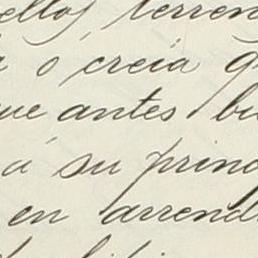 ellos terren
ó creia
ue antes bu
á su princ
en arrend